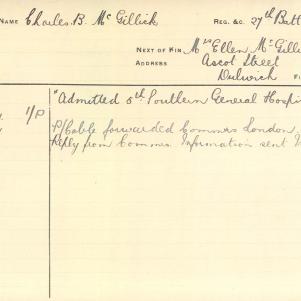 NAME Charles. B. Mc Gillick REG. &C. 27th Batt
NEXT OF KIN Mrs Ellen Mc Gilli
ADDRESS Ascot Street
Dulwich
1/P "Admitted 5th Southern General Hospi
P/Cable forwarded Commrs London,
Reply from Commrs. Information sent